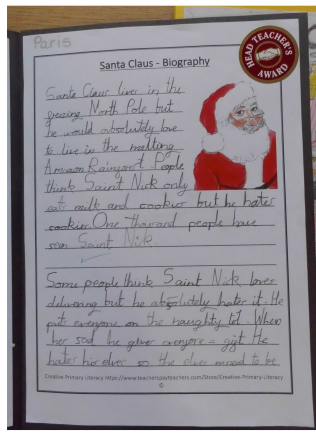 Paris
HEAD TEACHER'S AWARD
Santa Claus - Biography
Santa Claus lives in the
freezing North Pole but
he would absolutely love
to live in the melting
Amazon Rainforest. People
think Saint Nick only
eats milk and cookies but he hates
cookies. One thousand people have
seen Saint Nick.
Some people think Saint Nick loves
delivering but he absolutely hates it. He
puts everyone on the naughty list. When
he gives everyone a
hates his elves so the elves need to be
Creative Primary Literacy https://www.teacherspayteachers.com/Store/Creative-Primary-Literacy
©